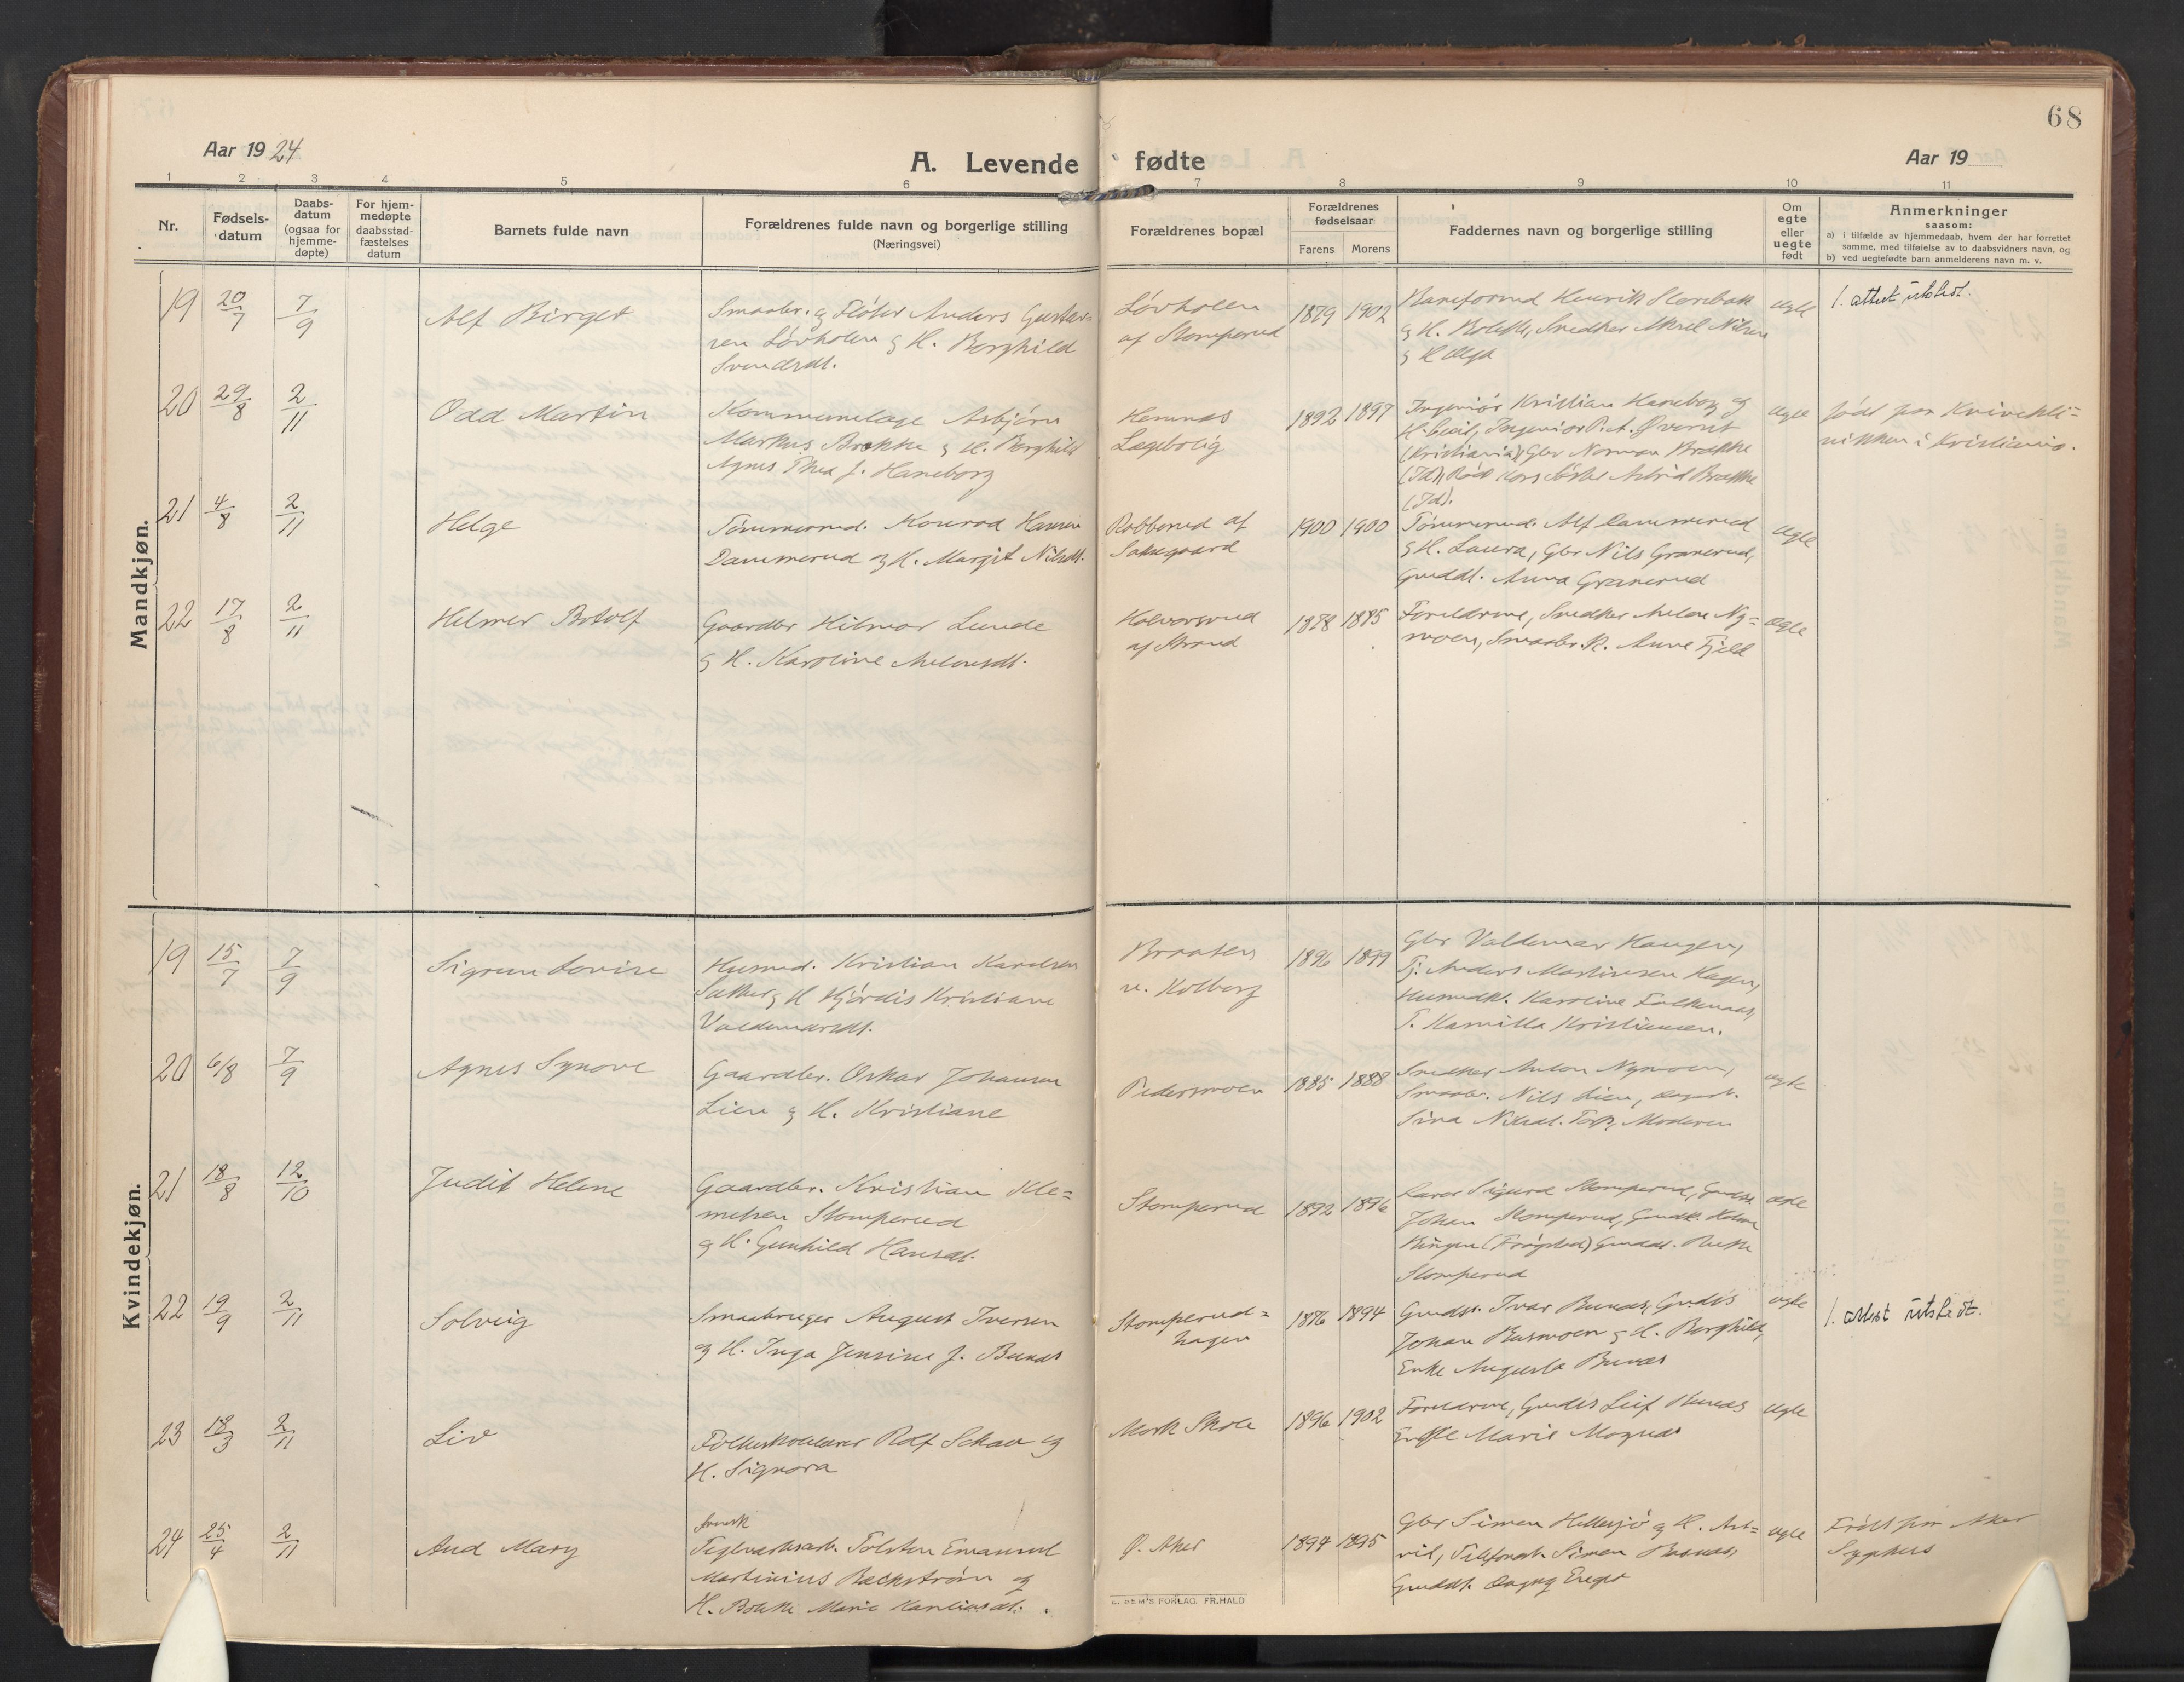 68
Aar 1924
A. Levende fødte
Aar 19
1 2 3 4 5 6 7 8 9 10 11
Nr.
Fødsels-
datum
Daabs-
datum
(ogsaa for
hjemme-
døpte)
For hjem-
medøpte
daabsstad-
fæstelses
datum
Barnets fulde navn
Forældrenes fulde navn og borgerlige stilling
(Næringsvei)
Forældrenes bopæl
Forældrenes
fødselsaar
Farens Morens
Faddernes navn og borgerlige stilling
Om
egte
eller
uegte
født
Anmerkninger
saasom:
a) i tilfælde av hjemmedaab, hvem der har forrettet
samme, med tilføielse av to daabsvidners navn, og
b) ved uegtefødte barn anmelderens navn m. v.
Mandkjøn.
19 20/7 7/9
Alf Birger
Smaabr. og Fløter Anders Gustav=
sen Løvholen & H. Borghild
Svendsdt.
Løvholen
af Stomperud
1879 1902
Henrik
& H. Snedker Aksel Nilsen
& H. Olga
egte
1. attest utstedt.
20 29/8 2/11
Odd Martin
Kommunelæge Asbjørn
Markus Brække & H. Borghild
Agnes Thea f. Haneborg
Hemnes
Lægebolig
1892 1897
Ingeniør Kristian Haneborg og
H. Ingeniør P. A. Øverst
(Kristiania), Gbr Norman Brække
(Id), Rød Kors søster Astrid Brække
(Id).
egte
født paa Kvinekli=
nikken i Kristiania.
21 4/8 2/11
Helge
Tømmermd. Konrad Hansen
Dammerud og H. Margit Nilsdt.
Robberud af
1900 1900
Tømmermd. Alf Dammerud
& H. Laura, Gbr Nils Granerud,
Gmddt. Anna Granerud
egte
22 17/8 2/11
Helmer Botolf
Gaardbr Hilmar Lunde
& H. Karoline Antonsdt.
af Strand
1878 1885
Forældrene, Snedker Anton Ny=
moen, Smaabr.k. Anne Fjeld
egte
Kvindekjøn.
19 15/7 7/9
Sigrun Lovise
Husmd. Kristian Karelsen
& H Hjørdis Kristiane
Valdemarsdt.
Braaten
u. Kolberg
1896 1899
Gbr Valdemar Haugen,
Tj. Anders Martinsen Hagen,
Husmdk. Karoline Falkenaas,
T. Kamilla Kristiansen.
20 6/8 7/9
Agnes Synøve
Gaardbr. Oskar Johansen
Lien & H. Kristiane
Pedersmoen
1885 1888
Snedker Anton Nymoen,
Smaabr. Nils Lien,
Sina Nilsdt. Moderen
egte
21 18/8 12/10
Judit Helene
Gaardbr. Kristian Kle=
metsen Stomperud
og H. Gunhild Hansdt.
Stomperud
1892 1896
Lærer Sigurd Stomperud, Gmds.
Johan Stomperud, Gmdk.
Ringen (Trøgstad) Gmddt.
Stomperud
egte
22 19/9 2/11
Solveig
Smaabruger August Iversen
og H. Inga Jensine f. Bunæs
Stomperud=
hagen
1876 1894
Gmds. Ivar Bunæs, Gmds
Johan Busmoen & H. Borghild,
Enke Augusta Bunæs
egte
1. attest utstedt.
23 18/3 2/11
Liv
Folkeskolelærer Rolf Schau og
H. Signora
Mork Skole
1896 1902
Forældrene, Gmds Leif Bunæs
Enke Marie
egte
24 25/4 2/11
Aud Mary
svensk
Teglverksarb. Tolsten Emanuel
Martinius Backstrøm og
H. Bolette Marie Karelinsdt.
Ø. Aker
1894 1895
Gbr Simen Hellesjø & H. Ast=
rid, Simen
Gmddt.
egte
Født paa Aker
Sygehus
E. SEM'S FORLAG, FR.HALD